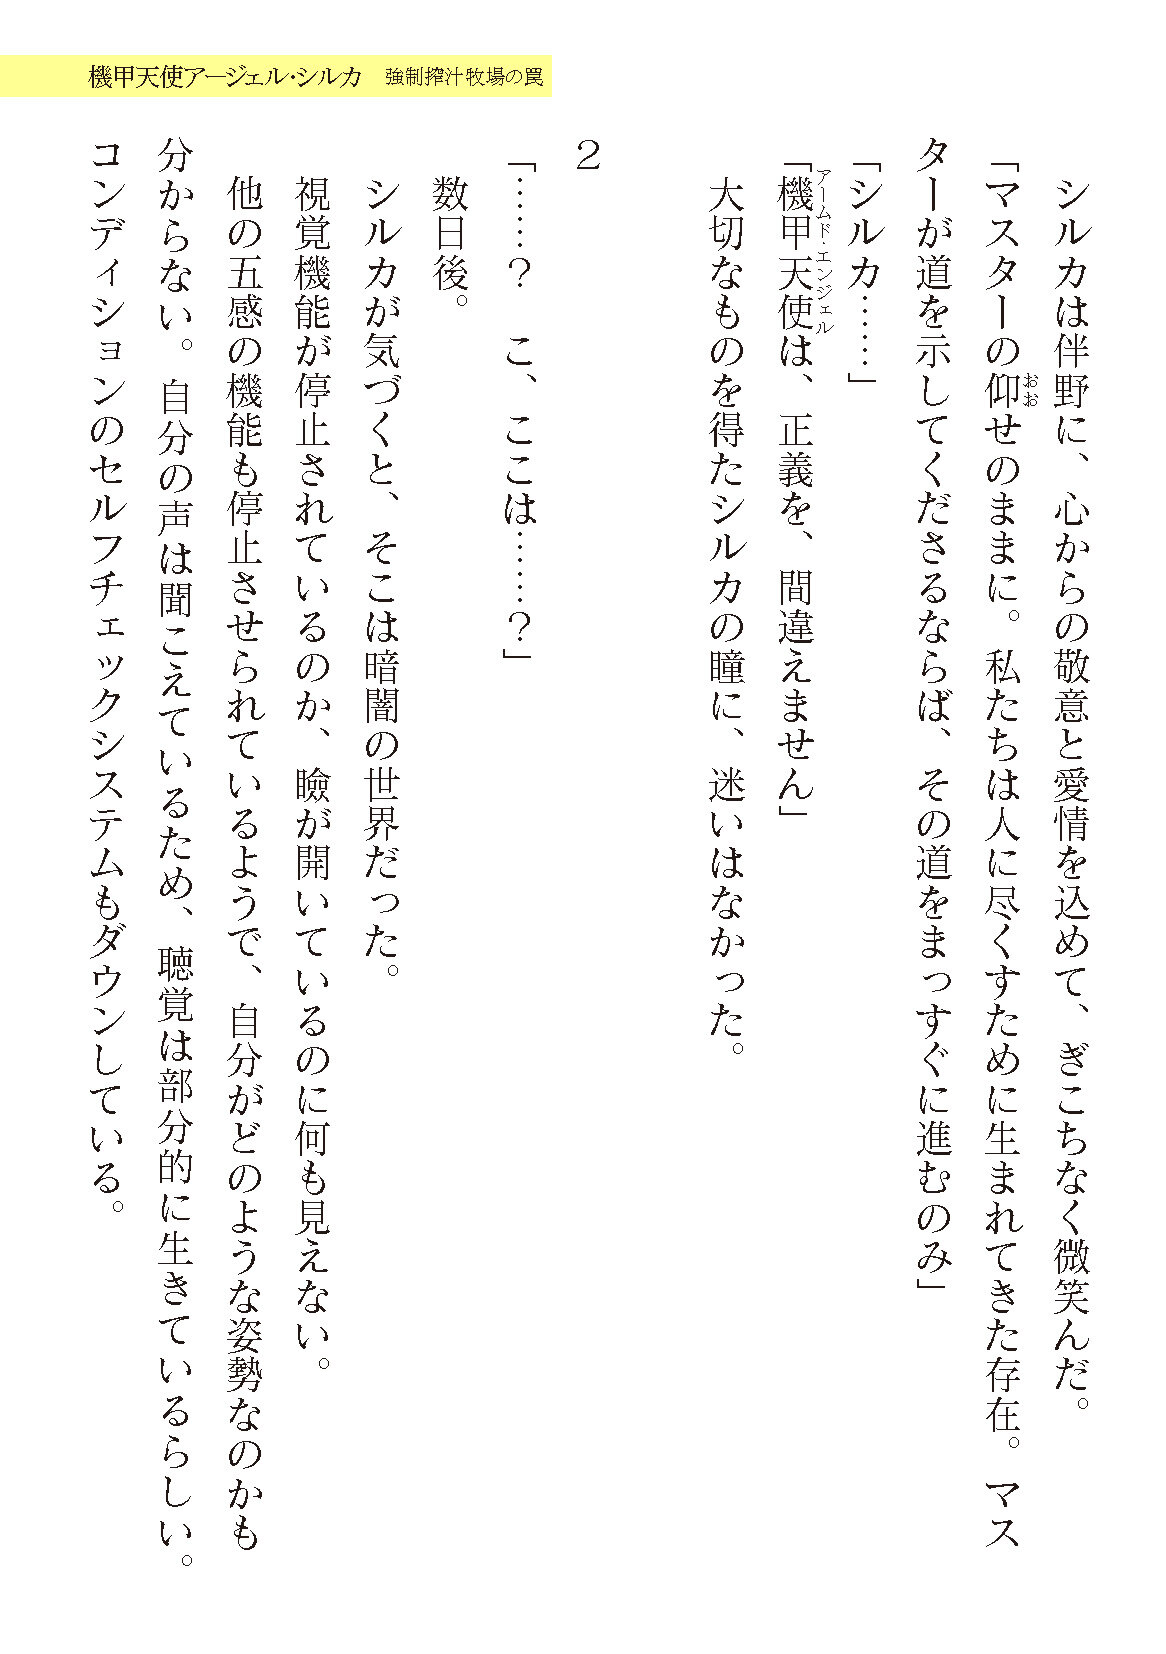 機甲天使アージェル・シルカ　強制搾汁牧場の罠
　シルカは伴野に、心からの敬意と愛情を込めて、ぎこちなく微笑んだ。
「マスターの仰せのままに。私たちは人に尽くすために生まれてきた存在。マス
おお
ターが道を示してくださるならば、その道をまっすぐに進むのみ」
「シルカ……」
「機甲天使は、正義を、間違えません」
アームド・エンジェル
　大切なものを得たシルカの瞳に、迷いはなかった。
２
「……？　こ、ここは……？」
　数日後。
　シルカが気づくと、そこは暗闇の世界だった。
　視覚機能が停止されているのか、瞼が開いているのに何も見えない。
　他の五感の機能も停止させられているようで、自分がどのような姿勢なのかも
分からない。自分の声は聞こえているため、聴覚は部分的に生きているらしい。
コンディションのセルフチェックシステムもダウンしている。